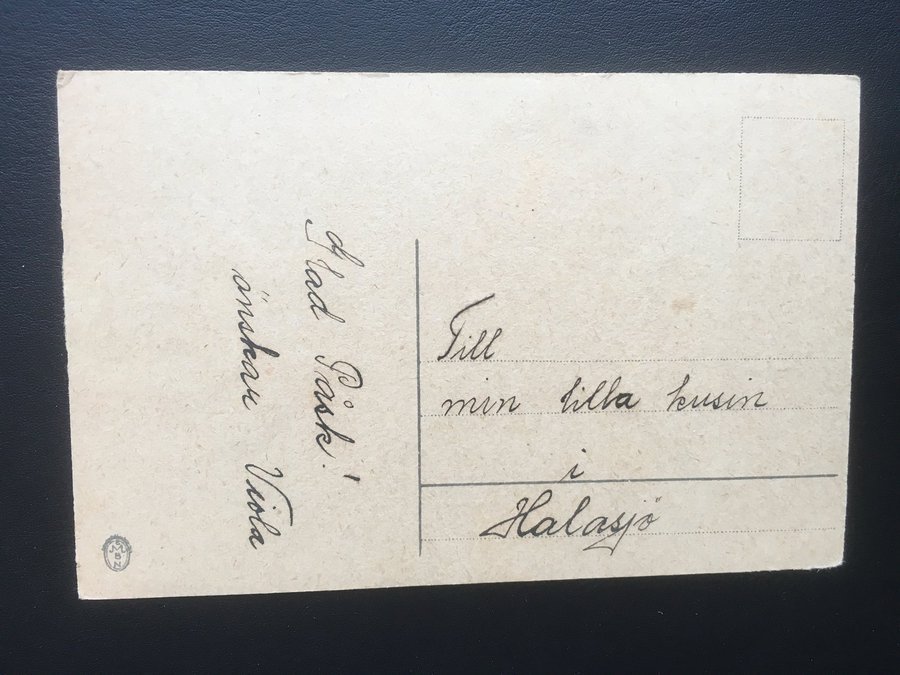 Glad Påsk!
önskar Viola
Till
min lilla kusin
i
Halasjö